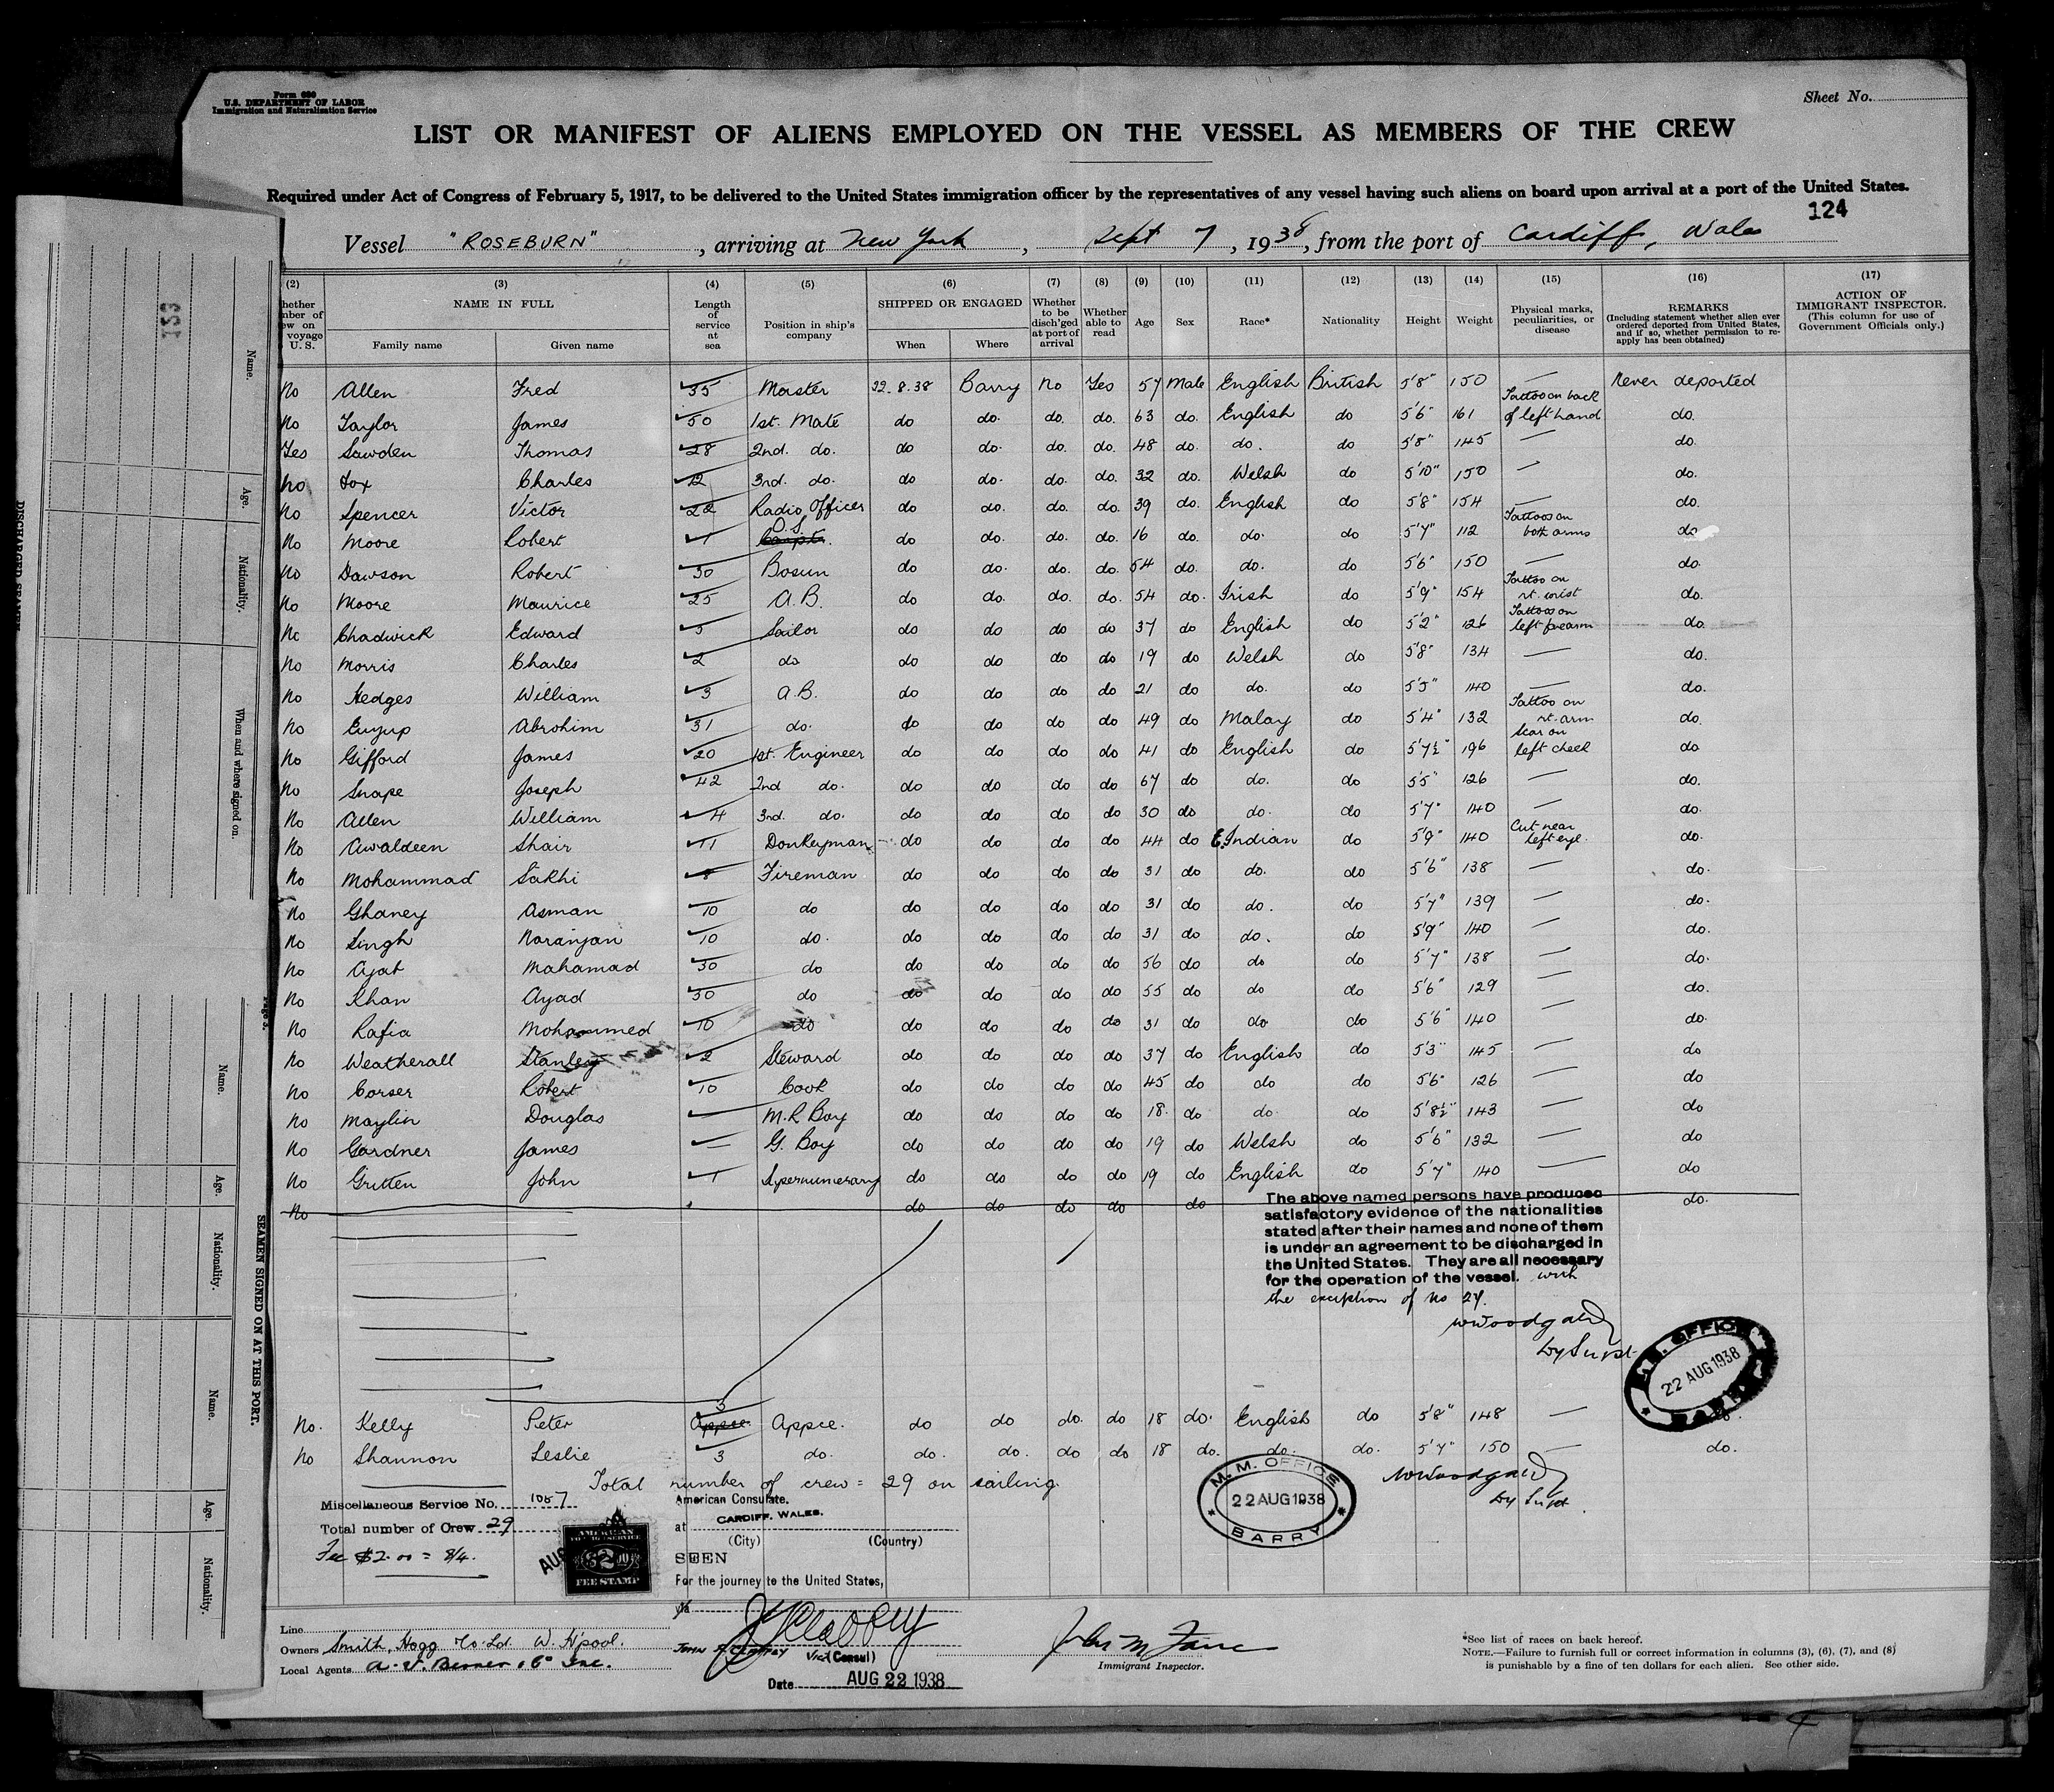 Form 680
U.S. DEPARTMENT OF LABOR
Immigration and Naturalization Service
Sheet No.
LIST OR MANIFEST OF ALIENS EMPLOYED ON THE VESSEL AS MEMBERS OF THE CREW
Required under Act of Congress of February 5, 1917, to be delivered to the United States immigration officer by the representatives of any vessel having such aliens on board upon arrival at a port of the United States.
124
Vessel "ROSEBURN", arriving at New York, Sept 7, 1938, from the port of Cardiff, Wales
(2) (3) (4) (5) (6) (7) (8) (9) (10) (11) (12) (13) (14) (15) (16) (17)
hether mber of ew on voyage U. S. NAME IN FULL Family name Given name Length of service at sea Position in ship's company SHIPPED OR ENGAGED When Where Whether to be disch'ged at port of arrival Whether able to read Age Sex Race* Nationality Height Weight Physical marks, peculiarities, or disease REMARKS (Including statement whether alien ever ordered deported from United States, and if so, whether permission to re-apply has been obtained) ACTION OF IMMIGRANT INSPECTOR. (This column for use of Government Officials only.)
No Allen Fred 35 Master 22.8.38 Barry No Yes 57 Male English British 5'8" 150 — Never deported
No Taylor James 50 1st. Mate do do. do. do. 63 do. English do 5'6" 161 Tattoo on back of left hand do.
Yes Sawden Thomas 28 2nd. do. do do. do. do. 48 do. do. do 5'8" 145 — do.
No Fox Charles 12 3rd. do. do do. do. do. 32 do. Welsh do 5'10" 150 — do.
No Spencer Victor 22 Radio Officer do do. do. do. 39 do. English do 5'8" 154 — do.
No Moore Robert 1 O.S. do do. do. do. 16 do. do. do 5'7" 112 Tattoos on both arms do
No Dawson Robert 30 Bosun do do. do. do. 54 do. do. do 5'6" 150 — do.
No Moore Maurice 25 A.B. do do. do. do. 54 do. Irish do 5'9" 154 Tattoo on rt. wrist do.
No Chadwick Edward 5 Sailor do do do do 37 do English do 5'2" 126 Tattoos on left forearm do.
No Morris Charles 2 do do do do do 19 do Welsh do 5'8" 134 — do.
No Hedges William 3 A.B. do do do do 21 do do. do 5'5" 140 — do.
No Euyup Abrohim 31 do. do do do do 49 do Malay do 5'4" 132 Tattoo on rt. arm do.
No Gifford James 20 1st. Engineer do do do do 41 do English do 5'7½" 196 Scar on left cheek do
No Snape Joseph 42 2nd do. do do do do 67 do do. do 5'5" 126 — do.
No Allen William 4 3rd. do. do do do do 30 do do. do 5'7" 140 — do.
No Awaldeen Shair 11 Donkeyman do do do do 44 do E.Indian do 5'9" 140 Cut near left eye. do.
No Mohammad Sakhi 8 Fireman do do do do 31 do do. do 5'6" 138 — do.
No Ghaney Asman 10 do do do do do 31 do do. do 5'7" 139 — do.
No Singh Naranjan 10 do. do do do do 31 do do. do 5'9" 140 — do.
No Ajab Mahamad 30 do do do do do 56 do do do 5'7" 138 — do.
No Khan Ayad 30 do do do do do 55 do do do 5'6" 129 — do.
No Rafia Mohammed 10 do do do do do 31 do do do 5'6" 140 — do.
No Weatherall Stanley 2 Steward do do do do 37 do English do 5'3" 145 — do
No Corser Robert 10 Cook do do do do 45 do do do 5'6" 126 — do
No Maylin Douglas — M.R Boy do do do do 18. do do. do 5'8½" 143 — do
No Gardner James — G. Boy do do do do 19 do Welsh do 5'6" 132 — do
No Gritten John 1 Supernumerary do do do do 19 do English do 5'7" 140 — do
No do do do do do do.
The above named persons have produced
satisfactory evidence of the nationalities
stated after their names and none of them
is under an agreement to be discharged in
the United States. They are all necessary
for the operation of the vessel. with
the exception of No 27.
WWoodgate
Dy Supt
M.M. OFFICE
22 AUG 1938
BARRY
No. Kelly Peter 3 Appce. Appce. do do do. do 18 do. English do 5'8" 148 —
No Shannon Leslie 3 do. do. do. do do 18 do. do. do. 5'7" 150 — do.
Total number of crew = 29 on sailing.
WWoodgate
Dy Supt.
M.M. OFFICE
22 AUG 1938
BARRY
Miscellaneous Service No. 1087
Total number of Crew 29
Fee $2.00 = 8/4.
AUG
AMERICAN
SERVICE
$2.00
FEE STAMP
American Consulate.
at CARDIFF, WALES.
(City) (Country)
SEEN
For the journey to the United States,
Vice (Consul)
Date AUG 22 1938
Immigrant Inspector.
Line
Owners Smith, Hogg Co. Ld. W. H'pool.
Local Agents Co Inc.
*See list of races on back hereof.
NOTE.—Failure to furnish full or correct information in columns (3), (6), (7), and (8)
is punishable by a fine of ten dollars for each alien. See other side.
153
Name.
Age.
Nationality.
When and where signed on.
DISCHARGED SEAMEN
Page 3.
Name.
Age.
Nationality.
Name.
Age.
Nationality.
SEAMEN SIGNED ON AT THIS PORT.